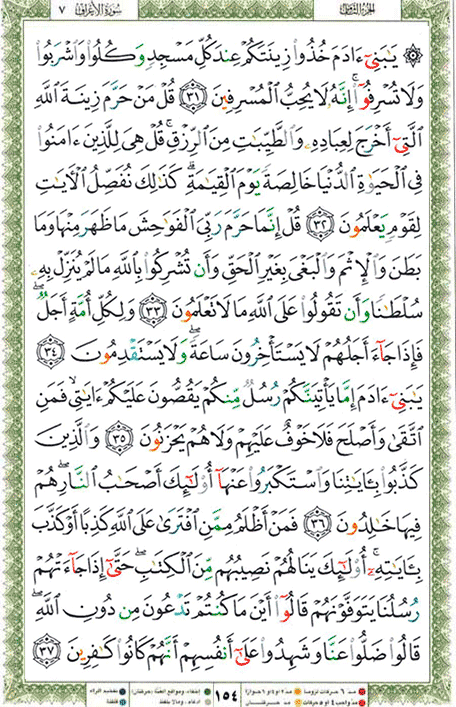 الجزء الثامن سورة الأعراف ٧
۞ يَـٰبَنِىٓ ءَادَمَ خُذُوا۟ زِينَتَكُمْ عِندَ كُلِّ مَسْجِدٍ وَكُلُوا۟ وَٱشْرَبُوا۟
وَلَا تُسْرِفُوٓا۟ ۚ إِنَّهُۥ لَا يُحِبُّ ٱلْمُسْرِفِينَ ٣١ قُلْ مَنْ حَرَّمَ زِينَةَ ٱللَّهِ
ٱلَّتِىٓ أَخْرَجَ لِعِبَادِهِۦ وَٱلطَّيِّبَـٰتِ مِنَ ٱلرِّزْقِ ۚ قُلْ هِىَ لِلَّذِينَ ءَامَنُوا۟
فِى ٱلْحَيَوٰةِ ٱلدُّنْيَا خَالِصَةً يَوْمَ ٱلْقِيَـٰمَةِ ۗ كَذَٰلِكَ نُفَصِّلُ ٱلْـَٔايَـٰتِ
لِقَوْمٍ يَعْلَمُونَ ٣٢ قُلْ إِنَّمَا حَرَّمَ رَبِّىَ ٱلْفَوَٰحِشَ مَا ظَهَرَ مِنْهَا وَمَا
بَطَنَ وَٱلْإِثْمَ وَٱلْبَغْىَ بِغَيْرِ ٱلْحَقِّ وَأَن تُشْرِكُوا۟ بِٱللَّهِ مَا لَمْ يُنَزِّلْ بِهِۦ
سُلْطَـٰنًا وَأَن تَقُولُوا۟ عَلَى ٱللَّهِ مَا لَا تَعْلَمُونَ ٣٣ وَلِكُلِّ أُمَّةٍ أَجَلٌ ۖ
فَإِذَا جَآءَ أَجَلُهُمْ لَا يَسْتَأْخِرُونَ سَاعَةً ۖ وَلَا يَسْتَقْدِمُونَ ٣٤
يَـٰبَنِىٓ ءَادَمَ إِمَّا يَأْتِيَنَّكُمْ رُسُلٌ مِّنكُمْ يَقُصُّونَ عَلَيْكُمْ ءَايَـٰتِى ۙ فَمَنِ
ٱتَّقَىٰ وَأَصْلَحَ فَلَا خَوْفٌ عَلَيْهِمْ وَلَا هُمْ يَحْزَنُونَ ٣٥ وَٱلَّذِينَ
كَذَّبُوا۟ بِـَٔايَـٰتِنَا وَٱسْتَكْبَرُوا۟ عَنْهَآ أُو۟لَـٰٓئِكَ أَصْحَـٰبُ ٱلنَّارِ ۖ هُمْ
فِيهَا خَـٰلِدُونَ ٣٦ فَمَنْ أَظْلَمُ مِمَّنِ ٱفْتَرَىٰ عَلَى ٱللَّهِ كَذِبًا أَوْ كَذَّبَ
بِـَٔايَـٰتِهِۦٓ ۚ أُو۟لَـٰٓئِكَ يَنَالُهُمْ نَصِيبُهُم مِّنَ ٱلْكِتَـٰبِ ۖ حَتَّىٰٓ إِذَا جَآءَتْهُمْ
رُسُلُنَا يَتَوَفَّوْنَهُمْ قَالُوٓا۟ أَيْنَ مَا كُنتُمْ تَدْعُونَ مِن دُونِ ٱللَّهِ ۖ
قَالُوا۟ ضَلُّوا۟ عَنَّا وَشَهِدُوا۟ عَلَىٰٓ أَنفُسِهِمْ أَنَّهُمْ كَانُوا۟ كَـٰفِرِينَ ٣٧
١٥٤